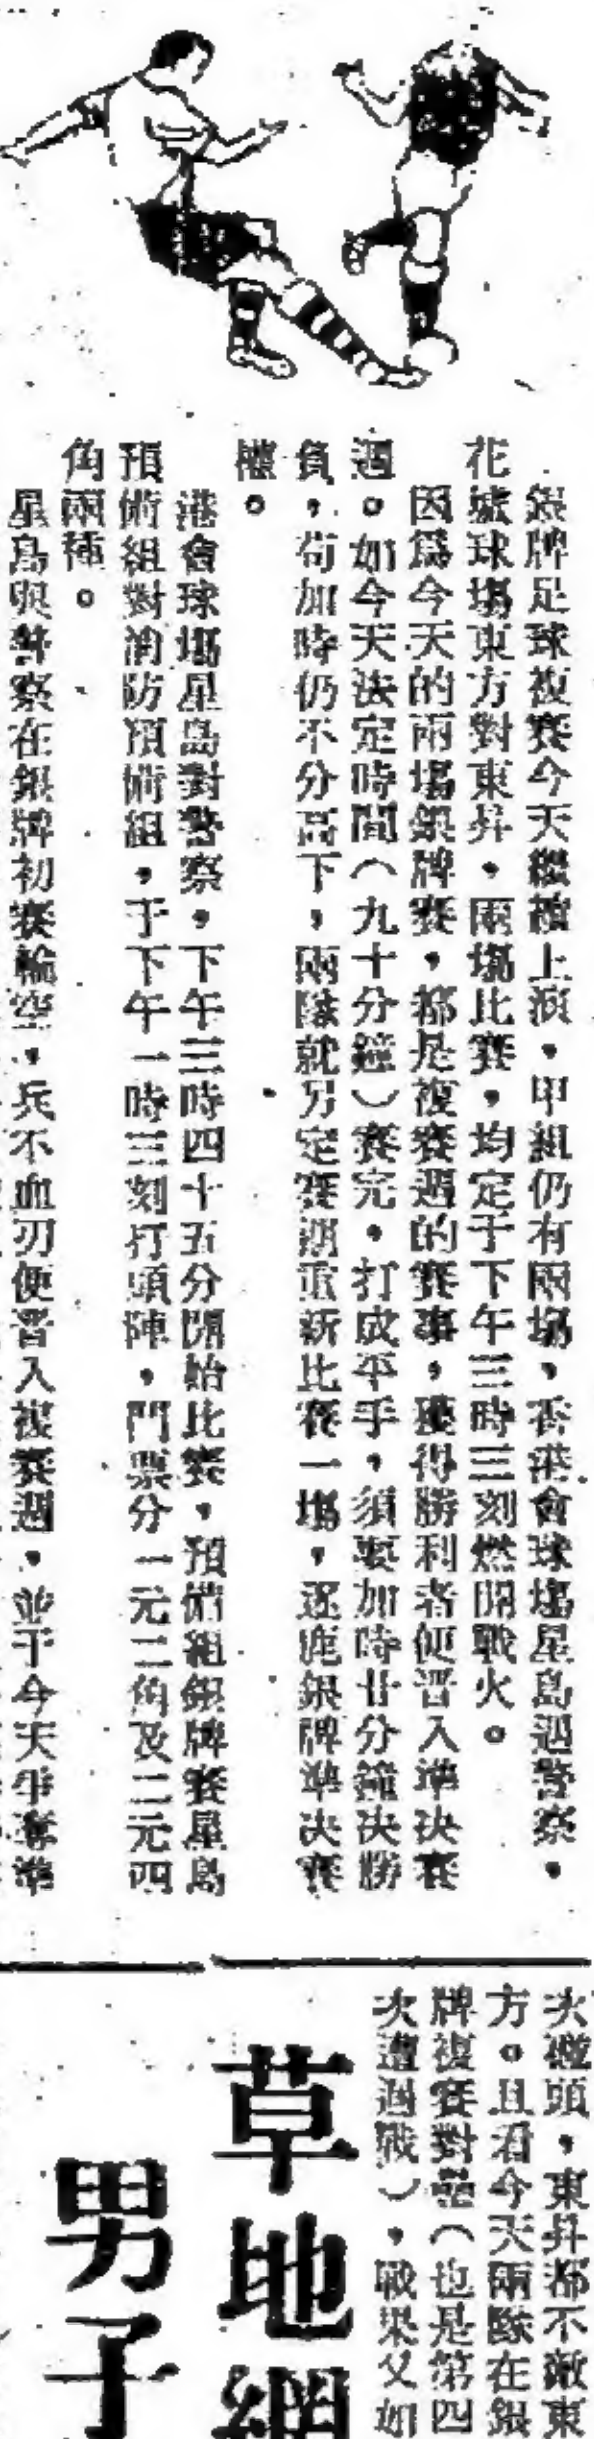 銀牌足球複賽今天繼續上演，甲組仍有兩場，香港會球塲星島遇警察，
花墟球塲東方對東昇，兩塲比賽，均定于下午三時三刻燃開戰火。
因爲今天的兩塲銀牌賽，都是複賽週的賽事，獲得勝利者便晋入準决賽
週。如今天法定時間（九十分鐘）賽完，打成平手，須要加時廿分鐘决勝
負，苟加時仍不分高下，兩隊就另定賽期重新比賽一塲，逐鹿銀牌準决賽
權。
港會球塲星島對警察，下午三時四十五分開始比賽，預備組銀牌賽星島
預備組對消防預備組，于下午一時三刻打頭陣，門票分一元二角及二元四
角兩種。
星島與警察在銀牌初賽輪空，兵不血刃便晋入複賽週，並于今天爭奪準
次碰頭，東昇都不敵東
方。且看今天兩隊在銀
牌複賽對壘（也是第四
次遭遇戰），戰果又如
草地網
男子